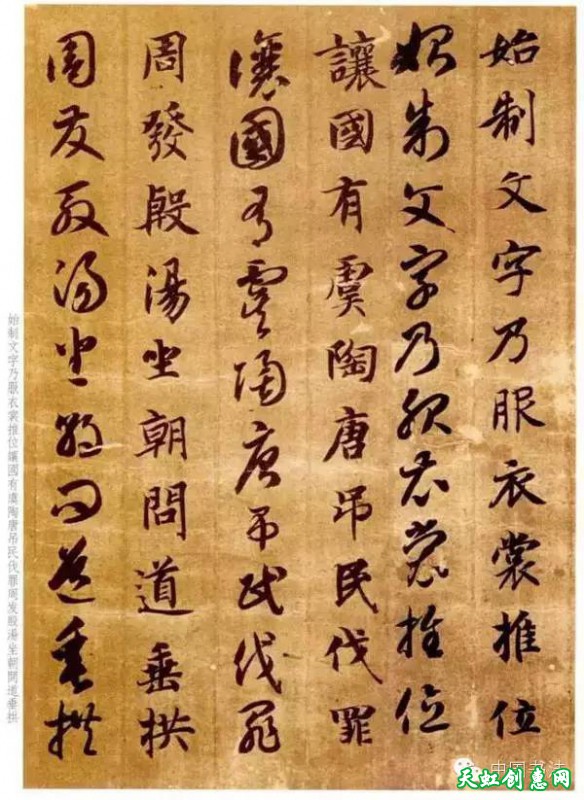 始制文字乃服衣裳推位
始制文字乃服衣裳推位
讓國有虞陶唐吊民伐罪
讓國有虞陶唐吊民伐罪
周發殷湯坐朝問道垂拱
周發殷湯坐朝問道垂拱
始制文字乃服衣裳推位讓國有虞陶唐吊民伐罪周发殷湯坐朝問道垂拱
中国书法
天虹创惠网